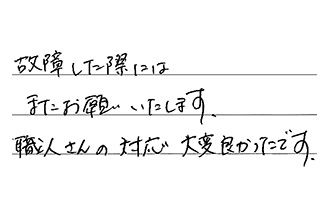 故障した際には
またお願いいたします.
職人さんの対応 大変良かったです.